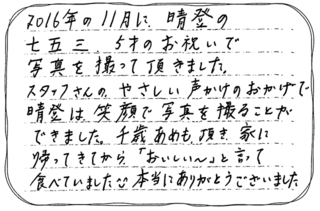 2016年の11月に、晴登の
七五三　5才のお祝いで
写真を撮って頂きました。
スタッフさんの、やさしい声かけのおかげで
晴登は、笑顔で写真を撮ることが
できました。千歳あめも頂き、家に
帰ってきてから「おいしい〜」と言って
食べていました☺本当にありがとうございました